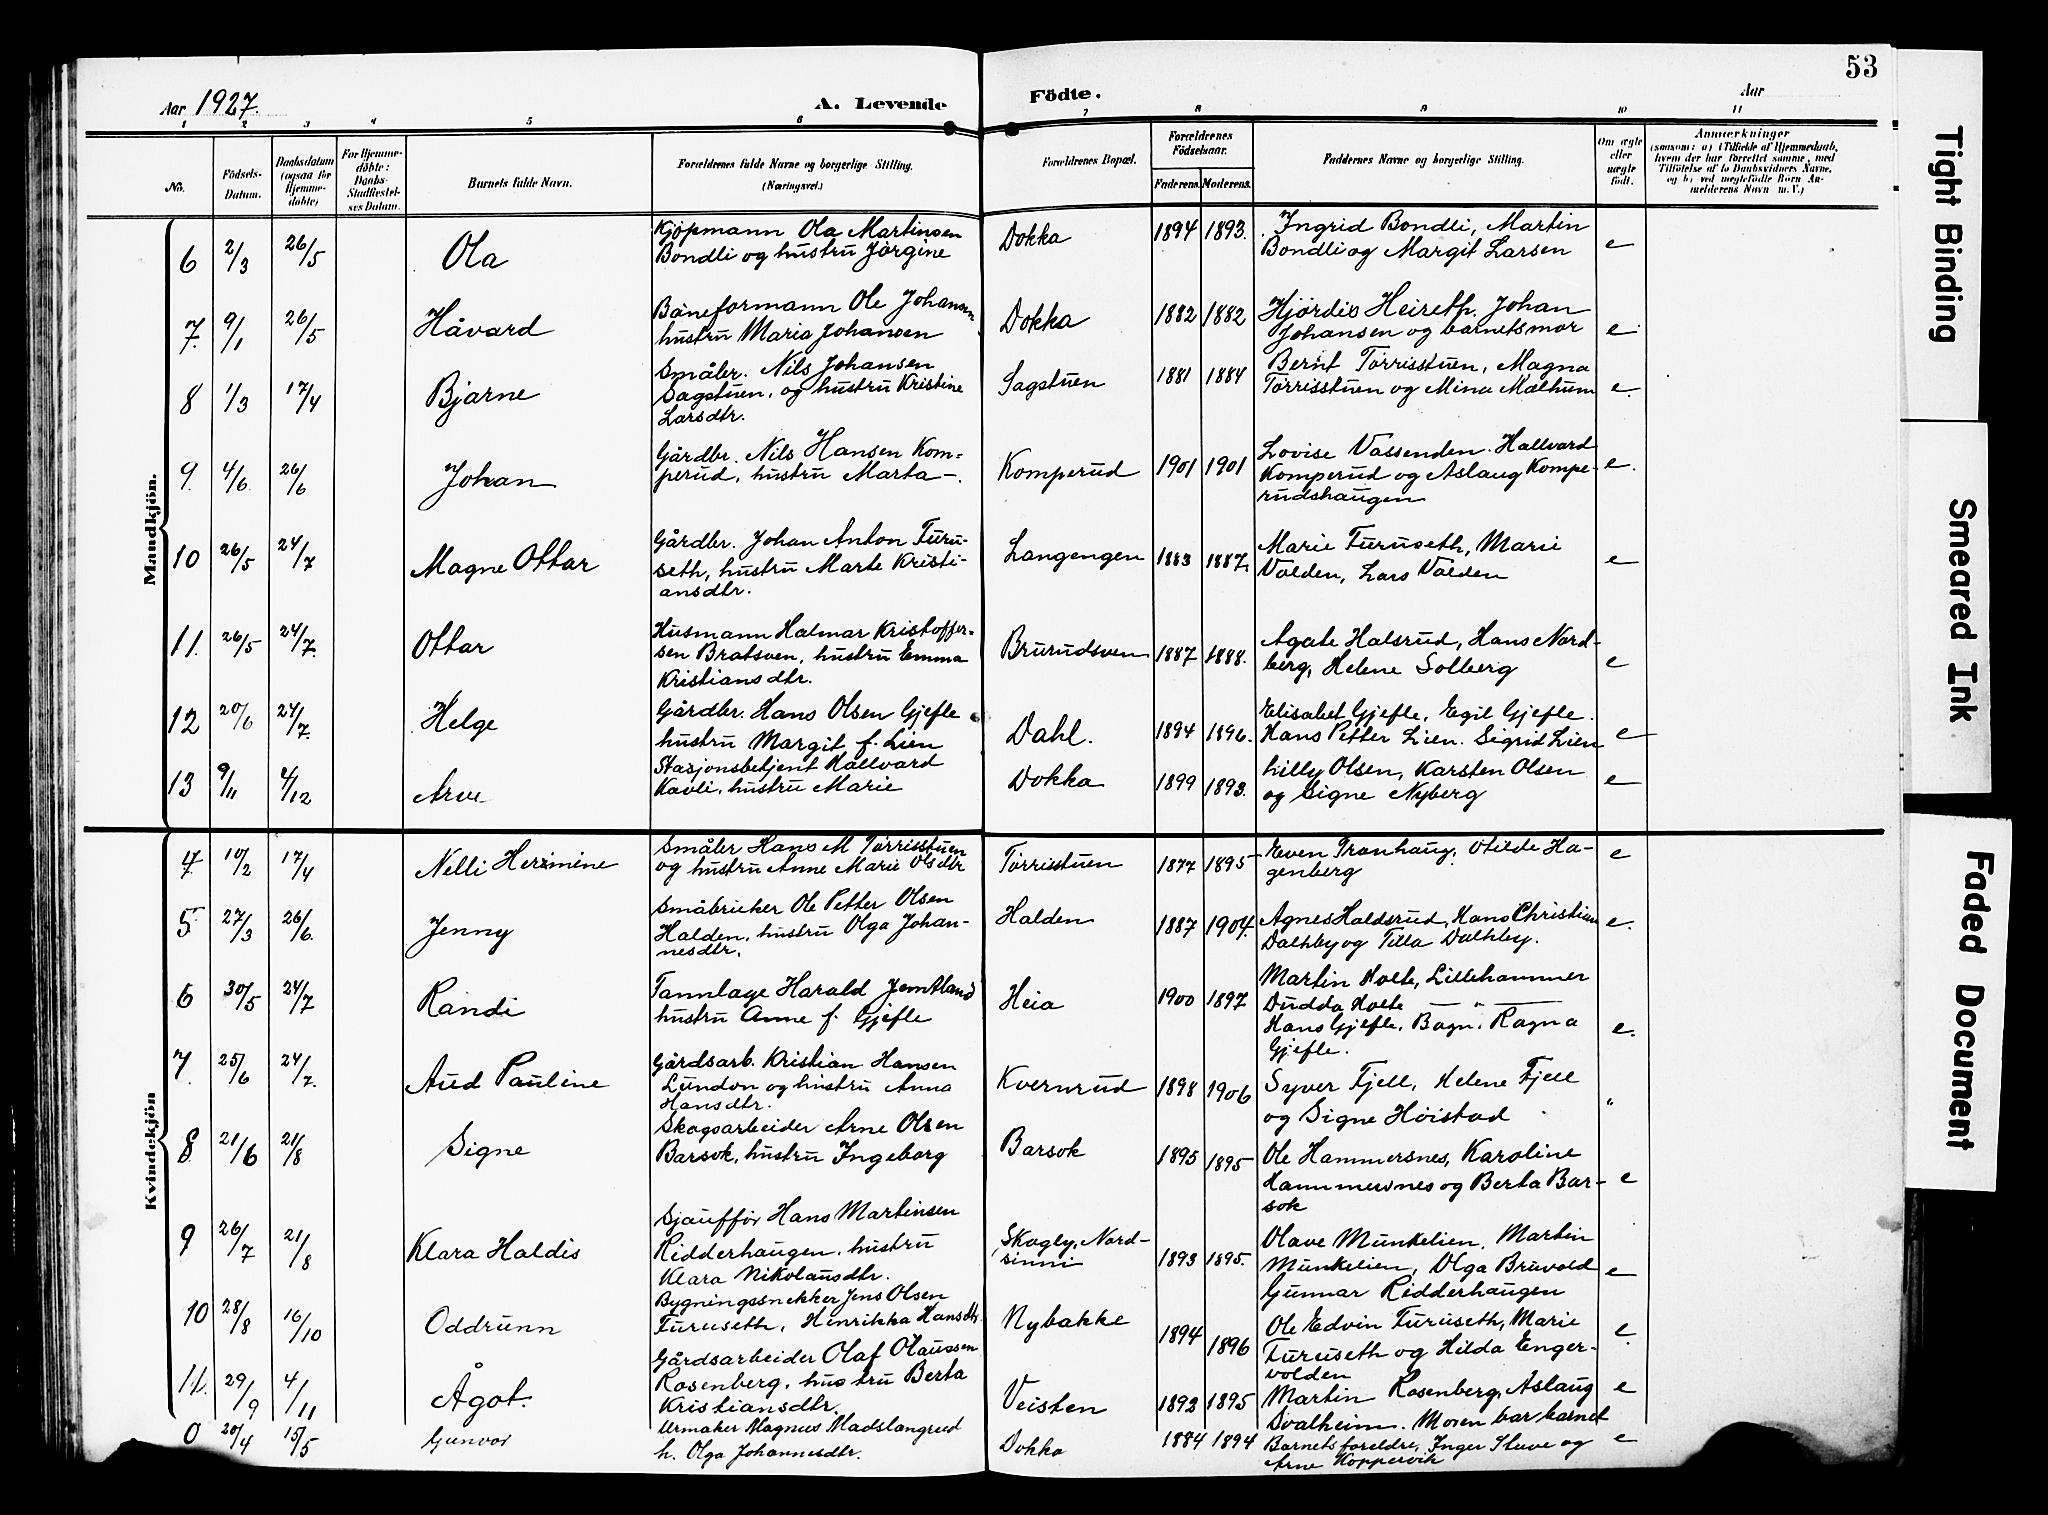 53
Aar 1927.
A. Levende Födte.
Aar
1 2 3 4 5 6 7 8 9 10 11
No.
Födsels-Datum.
Daabsdatum (ogsaa for Hjemme-döbte)
For Hjemme-döbte: Daabs-Stadfæstel-ses Datum.
Barnets fulde Navn.
Forældrenes fulde Navne og borgerlige Stilling. (Næringsvei.)
Forældrenes Bopæl.
Forældrenes Födselsaar.
Faderens. Moderens.
Faddernes Navne og borgerlige Stilling.
Om ægte eller uægte födt.
Anmærkninger
(saasom: a) i Tilfælde af Hjemmedaab, hvem der har forrettet samme, med Tilföielse af to Daabsvidners Navne, og b) ved uægtefödte Börn An-melderens Navn m. V.)
Mandkjön.
6 2/3 26/5 Ola Kjøpmann Ola Martinsen Dokka 1894 1893. Ingrid Bondli, Martin
Bondli og hustru Jørgine Bondli og Margit Larsen e
7. 9/1 26/5 Håvard Baneformann Ole Johansen Dokka 1882 1882 Hjørdis Heireth. Johan
hustru Maria Johansen Johansen og barnets mor e
8 1/3 17/4 Bjarne Småbr. Nils Johansen Sagstuen 1881 1884 Bernt Tørrisstuen, Magna
Sagstuen, og hustru Kristine Tørrisstuen og Mina Mælhum e.
Larsdtr.
9. 4/6 26/6 Johan Gårdbr. Nils Hansen Kom- Komperud 1901 1901 Lovise Vassenden. Hallvard
perud, hustru Marta —. Komperud og Aslaug Kompe- e.
rudshaugen
10 26/5 24/7 Magne Ottar Gårdbr. Johan Anton Furu- Langengen 1883 1887. Marie Furuseth, Marie
seth, hustru Marte Kristi- Volden, Lars Volden e
ansdtr.
11. 26/5 24/7. Ottar Husmann Halmar Kristoffer- Brurudsven 1887 1888. Agate Halsrud, Hans Nord-
sen Bratsven, hustru Emma berg, Helene Solberg e
Kristiansdtr.
12 20/6 24/7. Helge Gårdbr. Hans Olsen Gjefle Dahl. 1894 1896. Elisabet Gjefle, Egil Gjefle.
hustru Margit f. Lien Hans Petter Lien. Sigrid Lien e
13 9/11 4/12 Arve Stasjonsbetjent Hallvard Dokka 1899 1893. Lilly Olsen, Karsten Olsen
Kavli, hustru Marie og Signe Nyberg e
Kvindekjön
4. 10/2 17/4 Nelli Hermine Småbr Hans M Tørrisstuen Tørrisstuen 1877 1895 Even Tranhaug. Otilde Ha- e
og hustru Anne Marie Olsdtr genberg
5 27/3 26/6. Jenny Småbruker Ole Petter Olsen Halden 1887 1904. Agnes Haldsrud, Hans Christian e.
Halden, hustru Olga Johan- Dalhby og Tilla Dalhby.
nesdtr.
6 30/5 24/7 Randi Tannlæge Harald Jemtland Heia 1900 1897 Martin Holte, Lillehammer
hustru Anne f. Gjefle Dudda Holte — " —
Hans Gjefle, Bagn. Ragna e.
Gjefle.
7. 25/6 24/7. Aud Pauline Gårdsarb. Kristian Hansen Kvernrud 1898 1906 Syver Fjell, Helene Fjell
Lundon og hustru Anna og Signe Høistad "
Hansdtr.
8. 21/6 21/8 Signe Skogsarbeider Arne Olsen Barsok 1895 1895 Ole Hammersnes, Karoline
Barsok, hustru Ingeborg Hammersnes og Berta Bar- e
sok
9 26/7 21/8 Klara Haldis Sjauffør Hans Martinsen Skogly, Nord- 1893 1895. Olave Munkelien. Martin
Ridderhaugen, hustru sinni Munkelien, Olga Bruvold e
Klara Nikolausdtr. Gunnar Ridderhaugen
10 28/8 16/10 Oddrunn Bygningssnekker Jens Olsen Nybakke 1894 1896 Ole Edvin Furuseth, Marie
Furuseth, Henrikka Hansdtr. Furuseth og Hilda Enger- e.
volden
11. 29/9 4/11 Ågot. Gårdsarbeider Olaf Olaussen Veisten 1892 1895 Martin Rosenberg, Aslaug e
Rosenberg, hustru Berta Svalheim. Moren bar barnet
Kristiansdtr.
0 20/4 15/5 Gunvor Urmaker Magnus Madslangrud Dokka 1884 1894 Barnets foreldre, Inger Stuve og e
h. Olga Johannesdtr. Arne Koppervik
Tight Binding
Smeared Ink
Faded Document